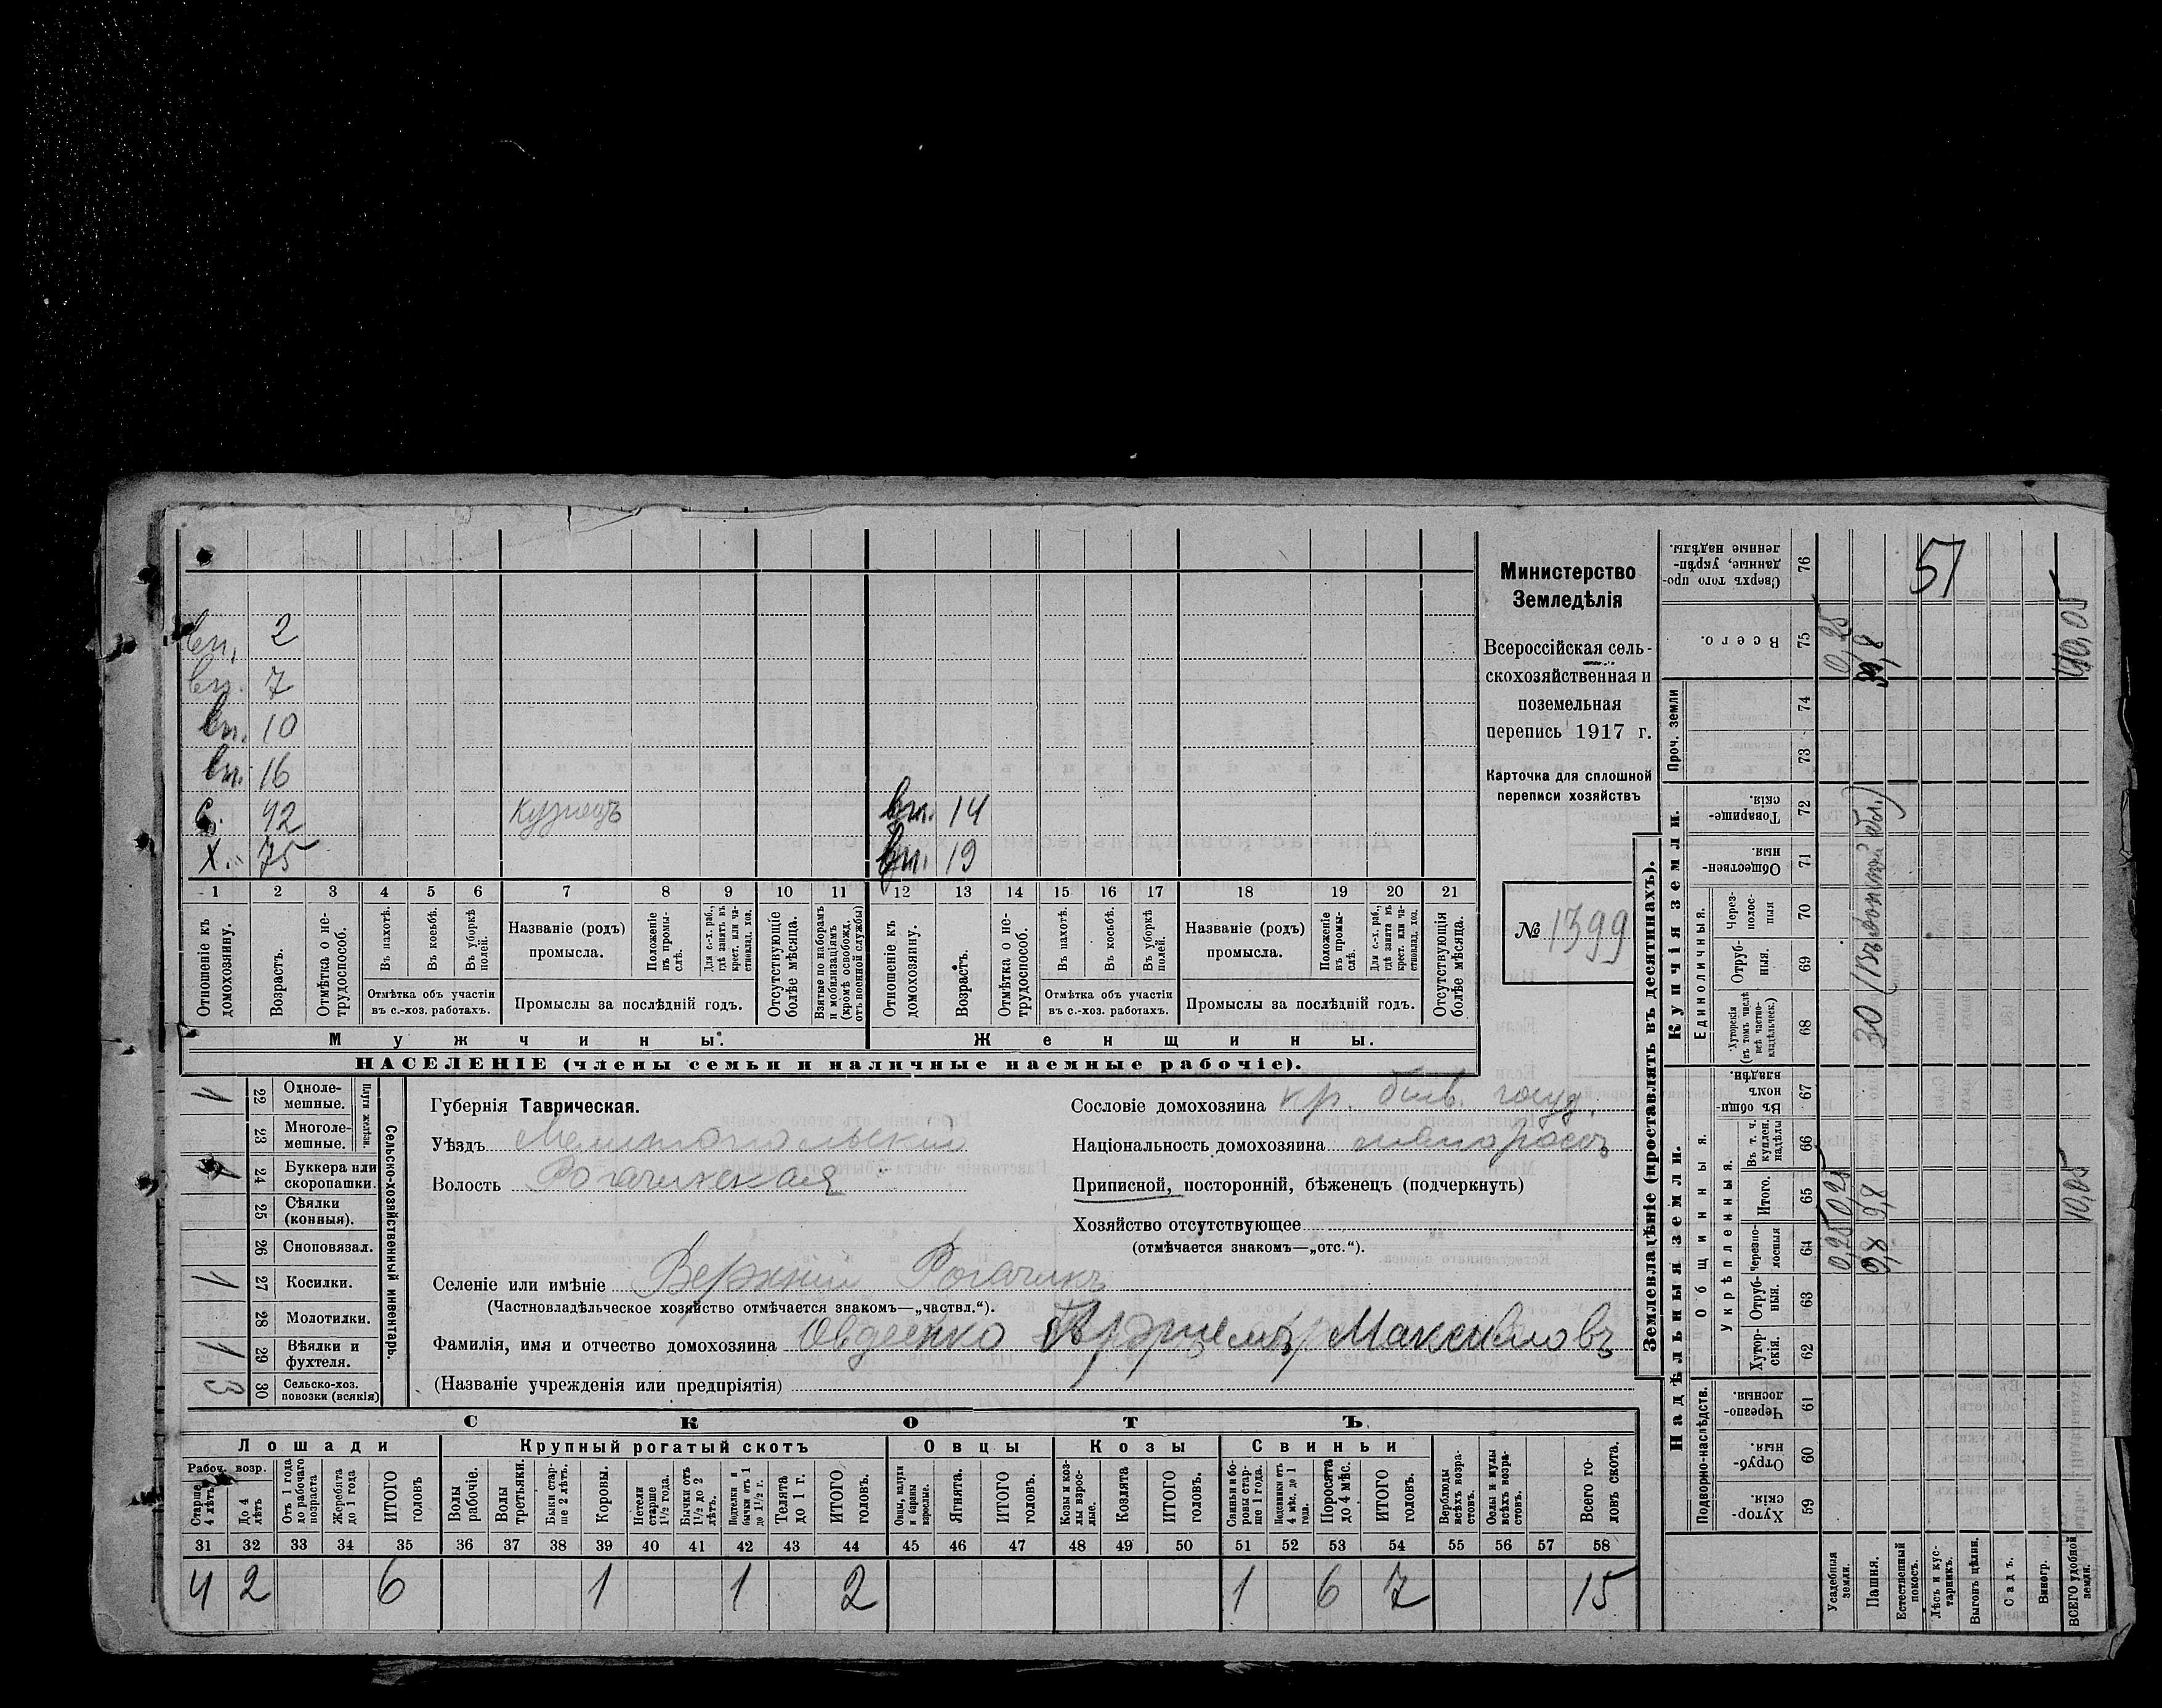 51
вн. 2
вн. 7
вн. 10
вн. 16
с. 42 кузнецъ вн. 14
Х. 75 вн. 19
1 2 3 4 5 6 7 8 9 10 11 12 13 14 15 16 17 18 19 20 21
Отношеніе къ домохозяину.
Возрастъ.
Отмѣтка о нетрудоспособ.
Въ пахотѣ.
Въ косьбѣ.
Въ уборкѣ полей.
Отмѣтка объ участіи
въ с.-хоз. работахъ.
Названіе (родъ)
промысла.
Положеніе въ промыслѣ.
Для с.-х. раб., гдѣ занятъ въ крест. или частновлад. хоз.
Промыслы за послѣдній годъ.
Отсутствующіе болѣе мѣсяца.
Взятые по наборамъ и мобилизаціямъ (кромѣ освобожд. отъ военной службы)
Отношеніе къ домохозяину.
Возрастъ.
Отмѣтка о нетрудоспособ.
Въ пахотѣ.
Въ косьбѣ.
Въ уборкѣ полей.
Отмѣтка объ участіи
въ с.-хоз. работахъ.
Названіе (родъ)
промысла.
Положеніе въ промыслѣ.
Для с.-х. раб., гдѣ занята въ крест. или частновлад. хоз.
Промыслы за послѣдній годъ.
Отсутствующія болѣе мѣсяца.
Мужчины.
Женщины.
НАСЕЛЕНІЕ (члены семьи и наличные наемные рабочіе).
Министерство
Земледѣлія
Всероссійская сель-
скохозяйственная и
поземельная
перепись 1917 г.
Карточка для сплошной
переписи хозяйствъ
№ 1399
Сельско-хозяйственный инвентарь.
Плуги желѣзн.
1 22 Одноле-мешные.
23 Многоле-мешные.
24 Буккера или скоропашки.
25 Сѣялки (конныя).
26 Сноповязал.
1 27 Косилки.
28 Молотилки.
1 29 Вѣялки и фухтеля.
3 30 Сельско-хоз. повозки (всякія)
Губернія Таврическая.
Уѣздъ Мелитопольскій
Волость Рогачикская
Сословіе домохозяина кр. быв. госуд.
Національность домохозяина малоросъ
Приписной, посторонній, бѣженецъ (подчеркнуть)
Хозяйство отсутствующее
(отмѣчается знакомъ—„отс.“).
Селеніе или имѣніе Верхний Рогачикъ
(Частновладѣльческое хозяйство отмѣчается знакомъ—„частвл.“).
Фамилія, имя и отчество домохозяина Овдеенко Артемъ Максимовъ
(Названіе учрежденія или предпріятія)
СКОТЪ
Лошади
Крупный рогатый скотъ
Овцы
Козы
Свиньи
Рабоч. возр.
Старше 4 лѣтъ
До 4 лѣтъ
Отъ 1 года до рабочаго возраста
Жеребята до 1 года
ИТОГО головъ
Волы рабочіе.
Волы третьяки.
Быки старше 2 лѣтъ.
Коровы.
Нетели старше 1½ года.
Бычки отъ 1½ до 2 лѣтъ.
Подтелки и бычки отъ 1 до 1½ г.
Телята до 1 г.
ИТОГО головъ.
Овцы, валухи и бараны взрослые.
Ягнята.
ИТОГО головъ.
Козы и козлы взрослые.
Козлята
ИТОГО головъ.
Свиньи и боровы старше 1 года.
Подсвинки отъ 4 мѣс. до 1 года.
Поросята до 4 мѣс.
ИТОГО головъ.
Верблюды всѣхъ возрастовъ.
Ослы и мулы всѣхъ возрастовъ.
Всего головъ скота.
31 32 33 34 35 36 37 38 39 40 41 42 43 44 45 46 47 48 49 50 51 52 53 54 55 56 57 58
4 2 6 1 1 2 1 6 7 15
Землевладѣніе (проставлять въ десятинахъ).
Надѣльныя земли.
Купчія земли.
Проч. земли
Подворно-наслѣдств.
Общинныя.
Укрѣпленныя.
Единоличныя.
Хутор-скія 59
Отруб-ныя. 60
Черезпо-лосныя. 61
Хутор-скія. 62
Отруб-ныя. 63
Черезпо-лосныя 64
Итого. 65
Въ т. ч. куплен. надѣлы 66
Въ общи-номъ владѣн. 67
Хуторскія (въ томъ числѣ всѣ частно-владѣльческ.) 68
Отруб-ныя. 69
Через-полос-ныя 70
Обществен-ныя. 71
Товарище-скія. 72
73
74
Всего. 75
Сверхъ того про-данные, укрѣп-ленные надѣлы. 76
Усадебныя земли. 0,25 0,25 0,25
Пашня. 9,8 9,8 30 39,8
Естественный покосъ.
Лѣсъ и кус-тарникъ.
Выгонъ цѣлин.
Садъ.
Виногр.
ВСЕГО удобной земли. 10,05 40,05